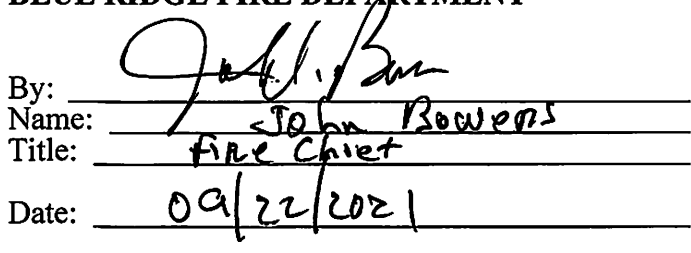 BLUE RIDGE FIRE DEPARTMENT
By:
Name: John Bowers
Title: Fire Chief
Date: 09/22/2021